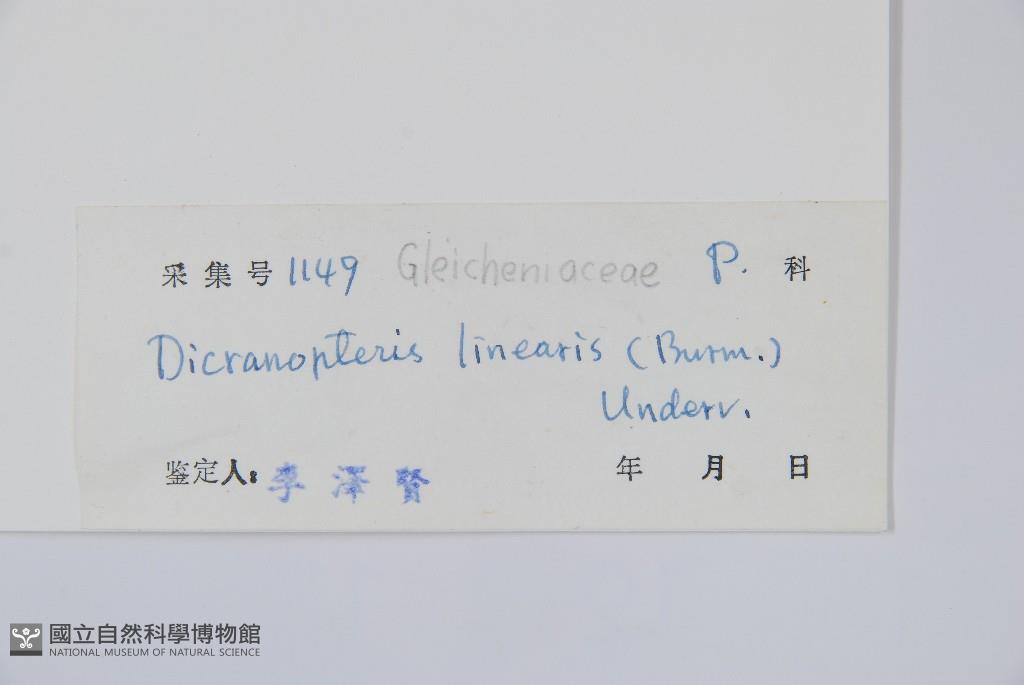 采集号 1149 Gleicheniaceae P. 科
Dicranopteris linearis (Burm.)
Underv.
鉴定人: 李泽贤 年 月 日
國立自然科學博物館
NATIONAL MUSEUM OF NATURAL SCIENCE